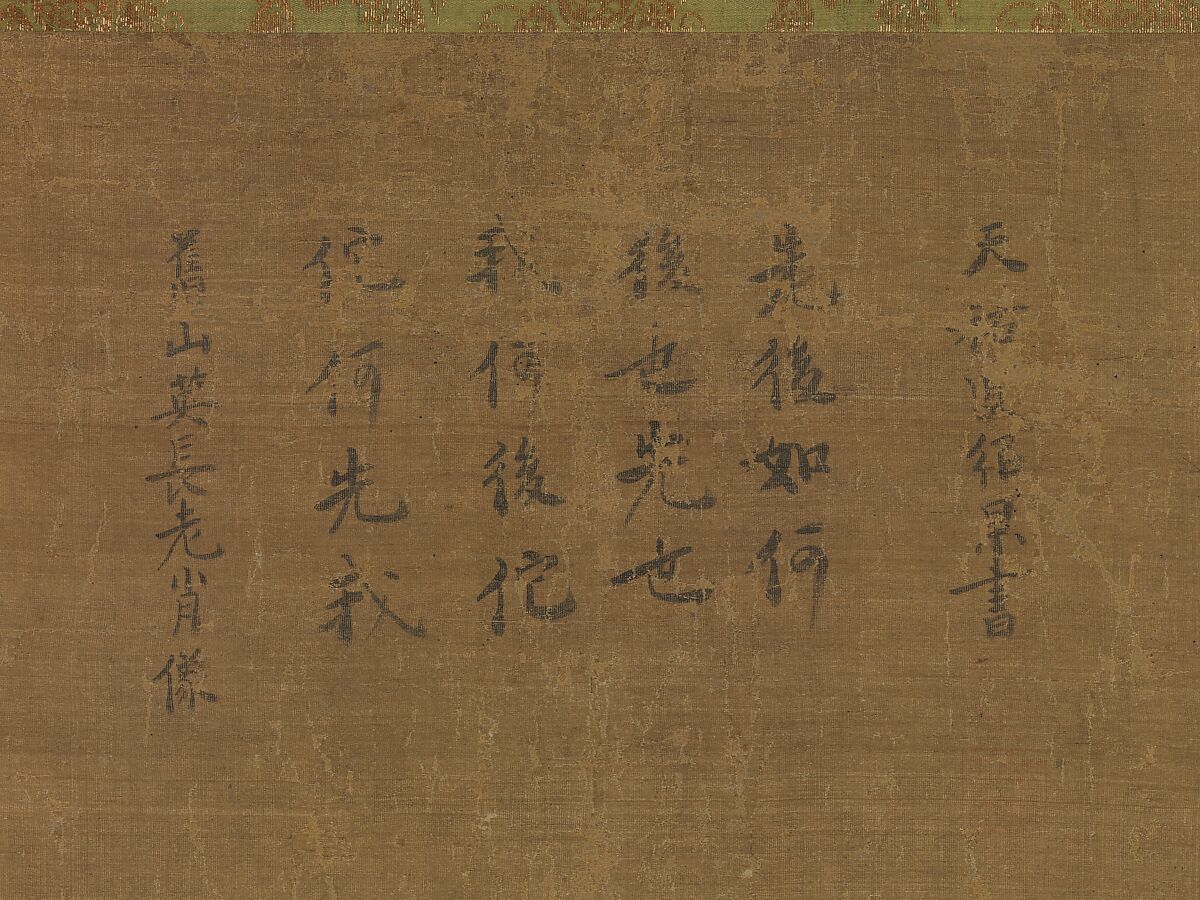 舊山英長老肖儀
佗何先我
我何後佗
後也先也
先後如何
天杲書